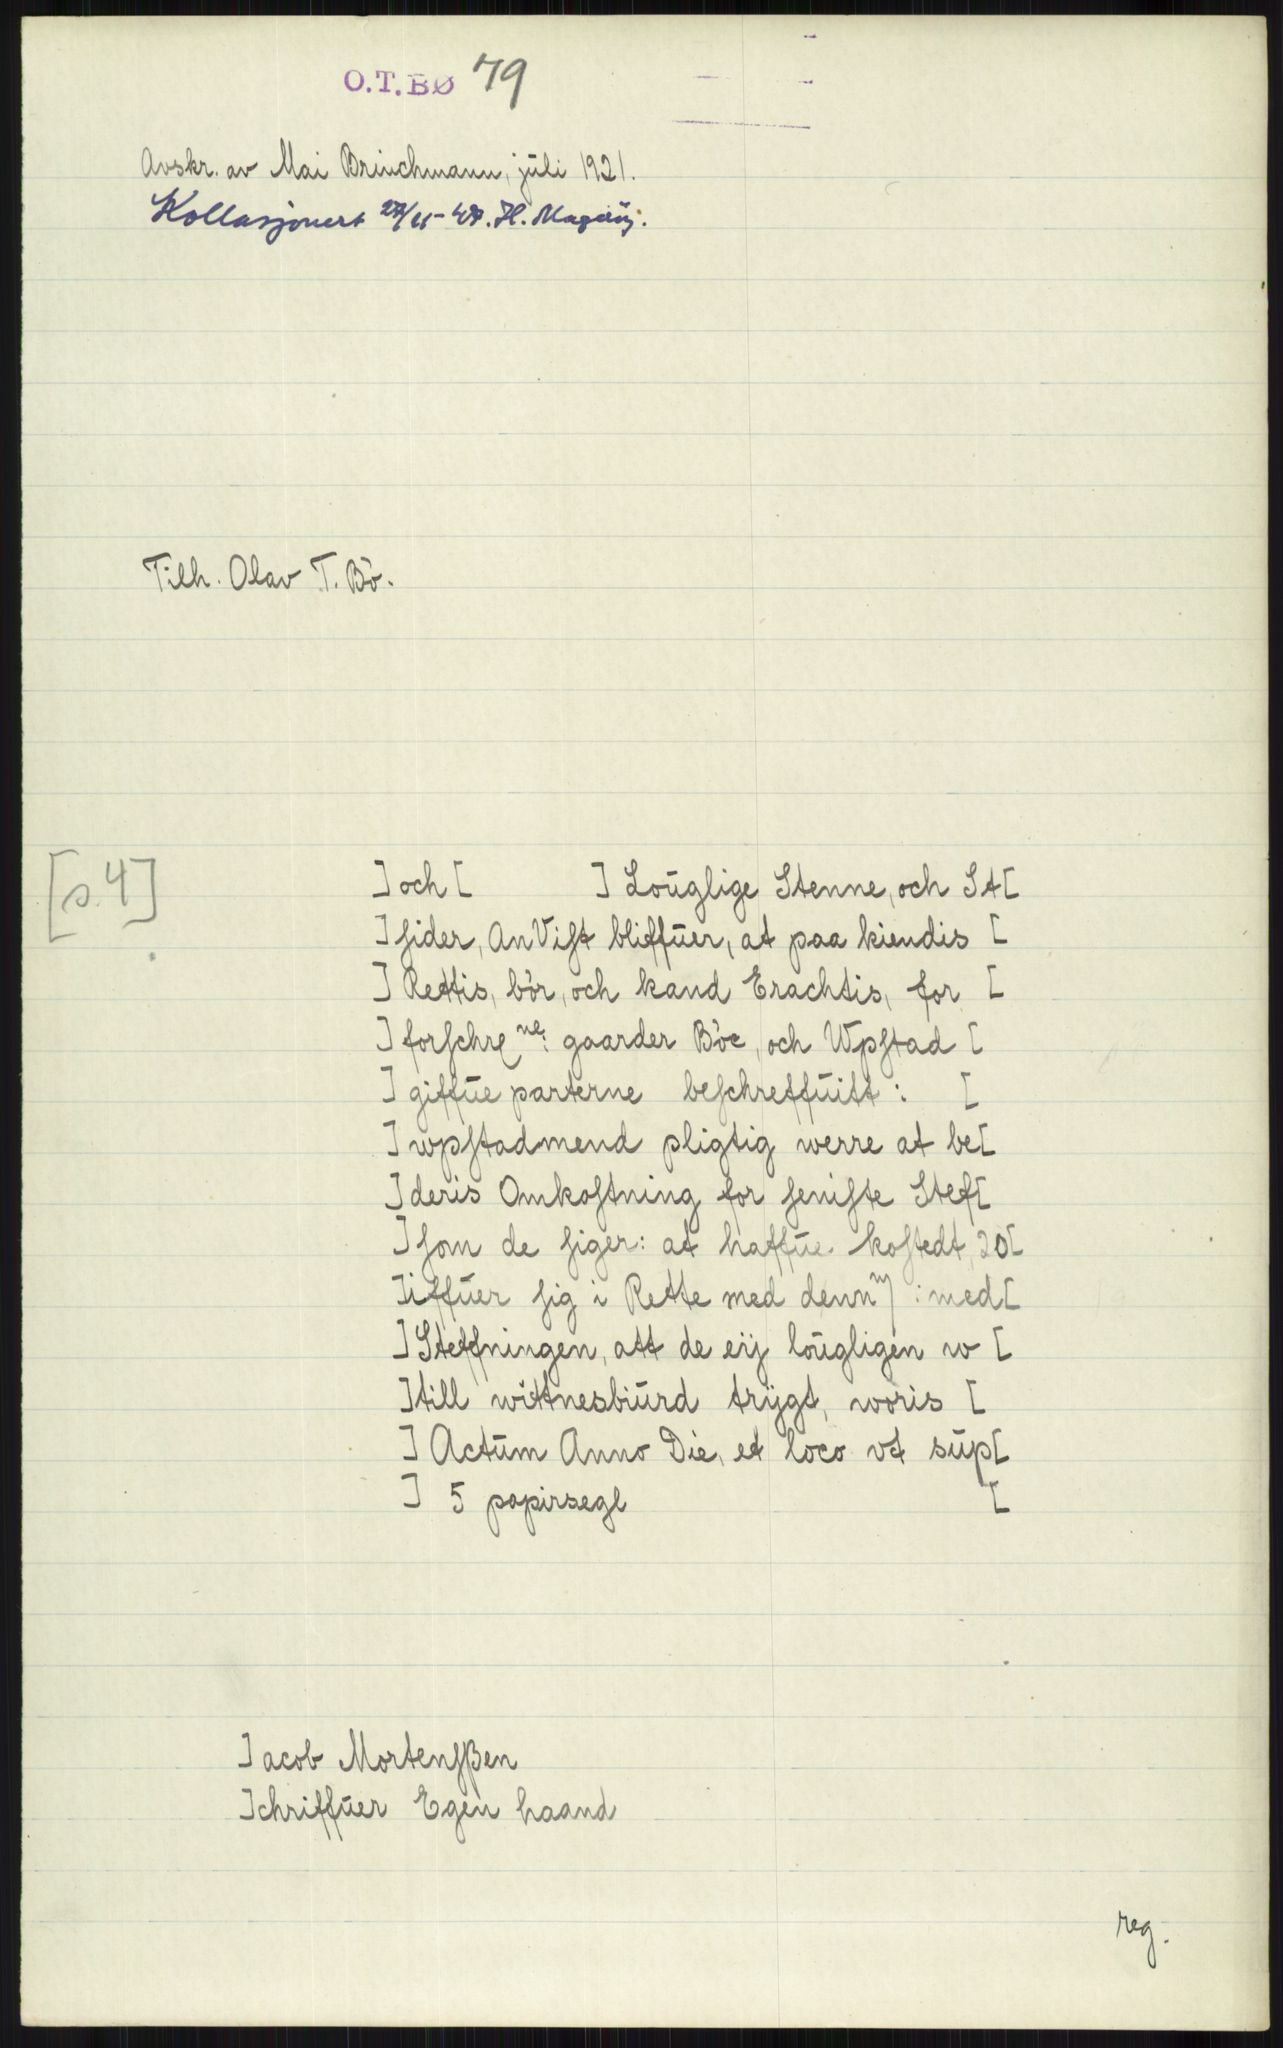 O.T.BØ 79
Avskr. av Mai Brinchmann, juli 1921.
Kollasjonert H.
Tilh. Olav T. Bö.
[s. 4]
] och [ ] Loŭglige Stenne, och St[
] ſider, AnViſt bliffŭer, at paa kiendis [
] Rettis, bör, och kand Erachtis, for [
] forſchre ne: gaarder Böe, och Wpſtad [
] giffŭe parterne beſchreffŭitt: [
] wpſtadmend pligtig werre at be[
] deris Omkoſtning for ſeniſte Stef[
] ſom de ſiger: at haffŭe koſtedt, 20[
]iffŭer ſig i Rette med denn : med[
] Steffningen, att de eij loŭgligen w [
]till wittnesbiŭrd trijgt, woris [
] Actŭm Anno Die, et loco vt sŭp[
] 5 papirsegl [
]acob Mortenſßen
]chriffŭer Egen haand
reg.